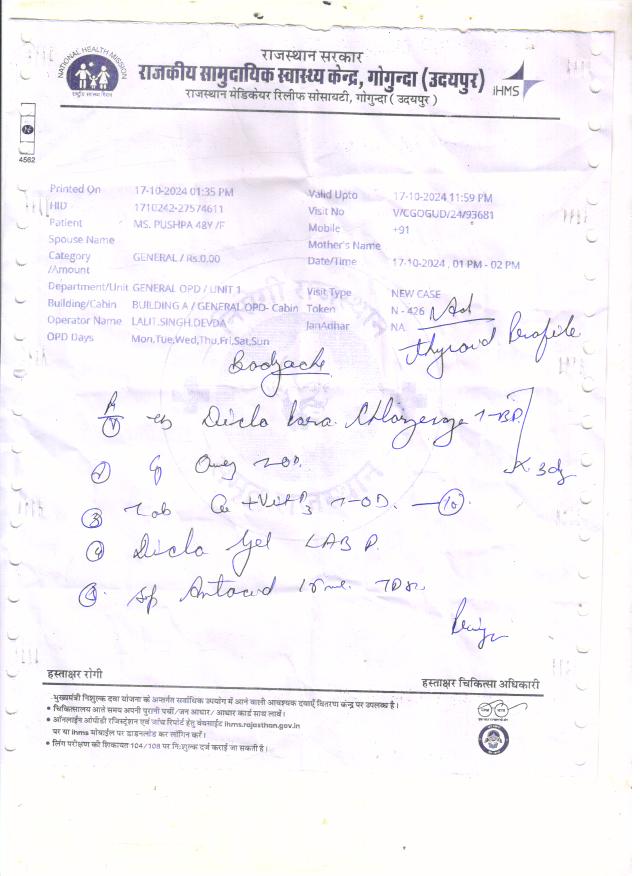 राजस्थान सरकार
राजकीय सामुदायिक स्वास्थ्य केन्द्र, गोगुन्दा (उदयपुर)
राजस्थान मेडिकेयर रिलीफ सोसायटी, गोगुन्दा ( उदयपुर )
NATIONAL HEALTH MISSION
राष्ट्रीय स्वास्थ्य मिशन
iHMS
4562
Printed On 17-10-2024 01:35 PM Valid Upto 17-10-2024 11:59 PM
HID 1710242-27574611 Visit No V/CGOGUD/24/93681
Patient MS. PUSHPA 48Y /F Mobile +91
Spouse Name Mother's Name
Category /Amount GENERAL / Rs.0.00 Date/Time 17-10-2024 , 01 PM - 02 PM
Department/Unit GENERAL OPD / UNIT 1 Visit Type NEW CASE
Building/Cabin BUILDING A / GENERAL OPD- Cabin Token N - 426
Operator Name LALIT.SINGH.DEVDA JanAdhar NA
OPD Days Mon,Tue,Wed,Thu,Fri,Sat,Sun
Adv
Thyroid Profile
Bodyache
Diclo Para
② 
③ Tab + Vit D3 1-OD. — 10
④ Diclo Gel LAB P.
⑤ Syp Antacid TDS.
हस्ताक्षर रोगी हस्ताक्षर चिकित्सा अधिकारी
मुख्यमंत्री निशुल्क दवा योजना के अन्तर्गत सर्वाधिक उपयोग में आने वाली आवश्यक दवाएँ वितरण केन्द्र पर उपलब्ध है।
• चिकित्सालय आते समय अपनी पुरानी पर्ची/जन आधार/ आधार कार्ड साथ लावें।
• ऑनलाईन ओपीडी रजिस्ट्रेशन एवं जाँच रिपोर्ट हेतु वेबसाईट ihms.rajasthan.gov.in
पर या ihms मोबाईल पर डाउनलोड कर लॉगिन करें।
• लिंग परीक्षण की शिकायत 104/108 पर निःशुल्क दर्ज कराई जा सकती है।